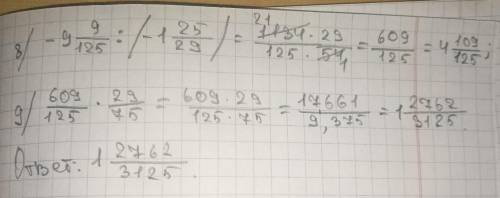 8/ -9 9/125 : (-1 25/29) = 21 1134 · 29 / 125 · 54 1 = 609/125 = 4 109/125;
9/ 609/125 · 29/75 = 609 · 29 / 125 · 75 = 17661/9,375 = 1 2762/3125.
Ответ: 1 2762/3125.